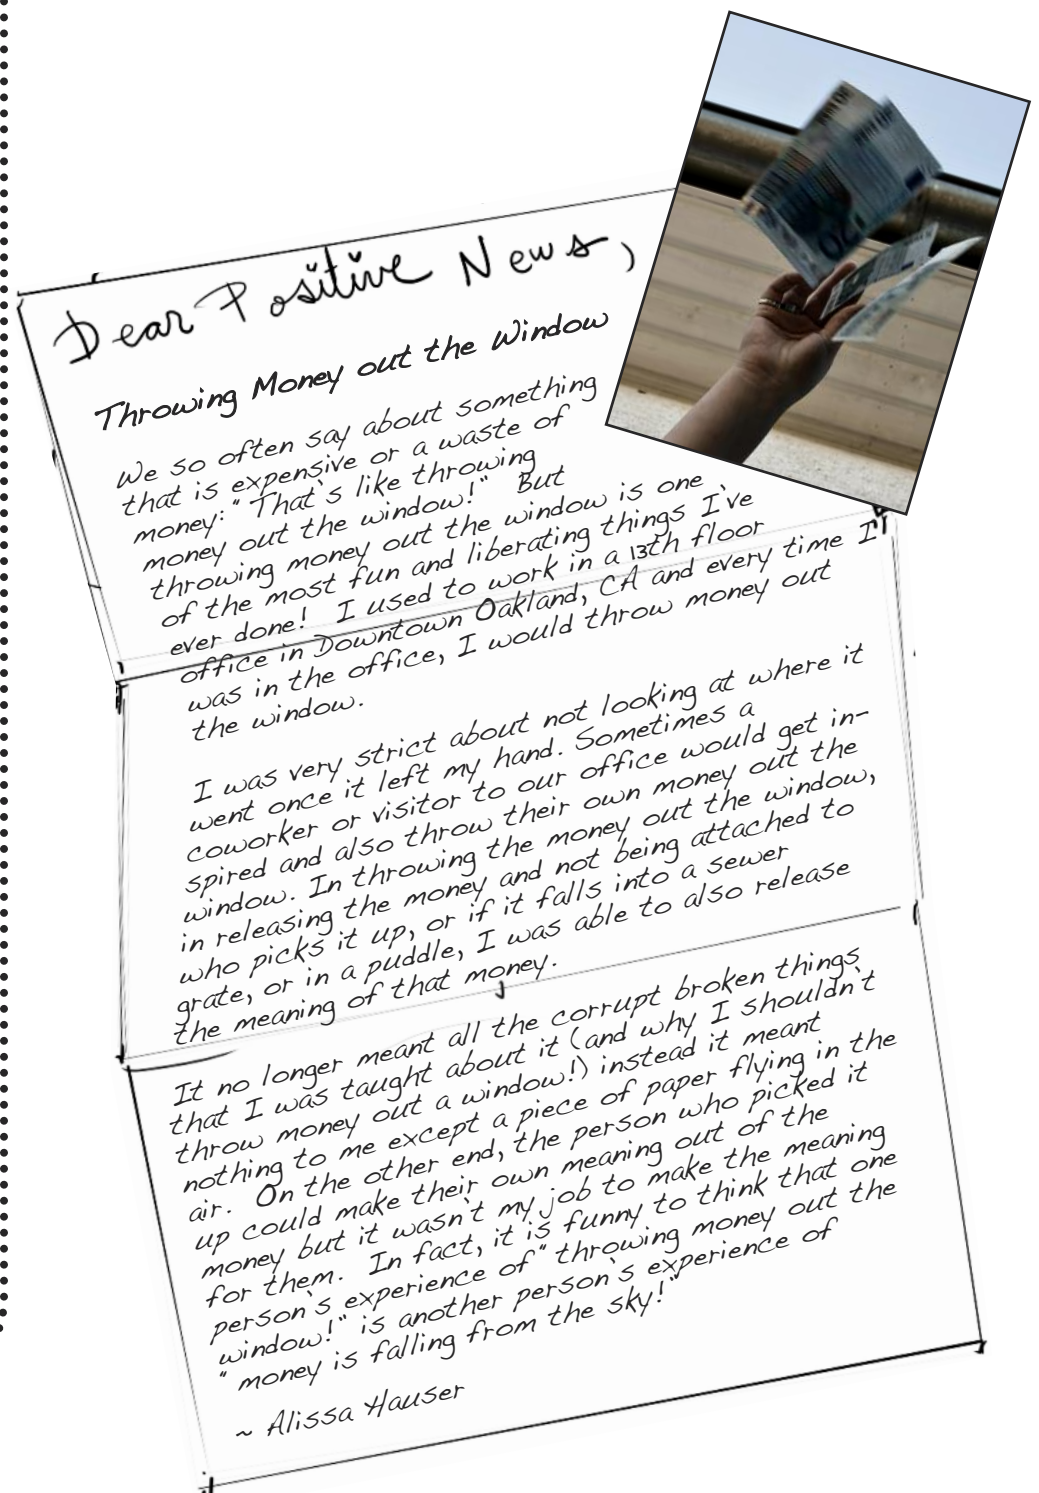 Dear Positive News,
Throwing Money out the Window
We so often say about something
that is expensive or a waste of
money: "That's like throwing
money out the window!" But
throwing money out the window is one
of the most fun and liberating things I've
ever done! I used to work in a 13th floor
office in Downtown Oakland, CA and every time I
was in the office, I would throw money out
the window.
I was very strict about not looking at where it
went once it left my hand. Sometimes a
coworker or visitor to our office would get in-
spired and also throw their own money out the
window. In throwing the money out the window,
in releasing the money and not being attached to
who picks it up, or if it falls into a sewer
grate, or in a puddle, I was able to also release
the meaning of that money.
It no longer meant all the corrupt broken things
that I was taught about it (and why I shouldn't
throw money out a window!) instead it meant
nothing to me except a piece of paper flying in the
air. On the other end, the person who picked it
up could make their own meaning out of the
money but it wasn't my job to make the meaning
for them. In fact, it is funny to think that one
person's experience of "throwing money out the
window!" is another person's experience of
"money is falling from the sky!"
~ Alissa Hauser